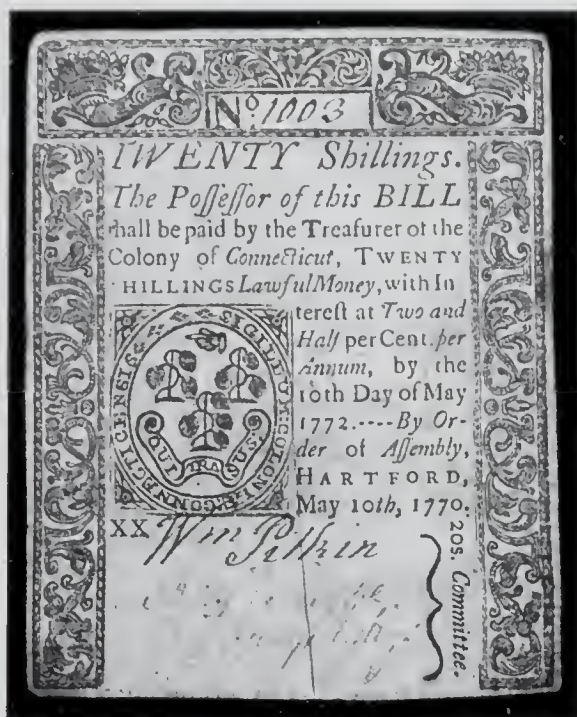 No. 1003
TWENTY Shillings.
The Poſſeſſor of this BILL
ſhall be paid by the Treaſurer of the
Colony of Connecticut, TWENTY
HILLINGS Lawful Money, with In
tereſt at Two and
Half per Cent. per
Annum, by the
10th Day of May
1772.----By Or-
der of Aſſembly,
HARTFORD,
May 10th, 1770.
SIGILLUM COLONIÆ CONNECTICENSIS
QUI TRA SUS
XX
Wm Pitkin
20s. Committee.